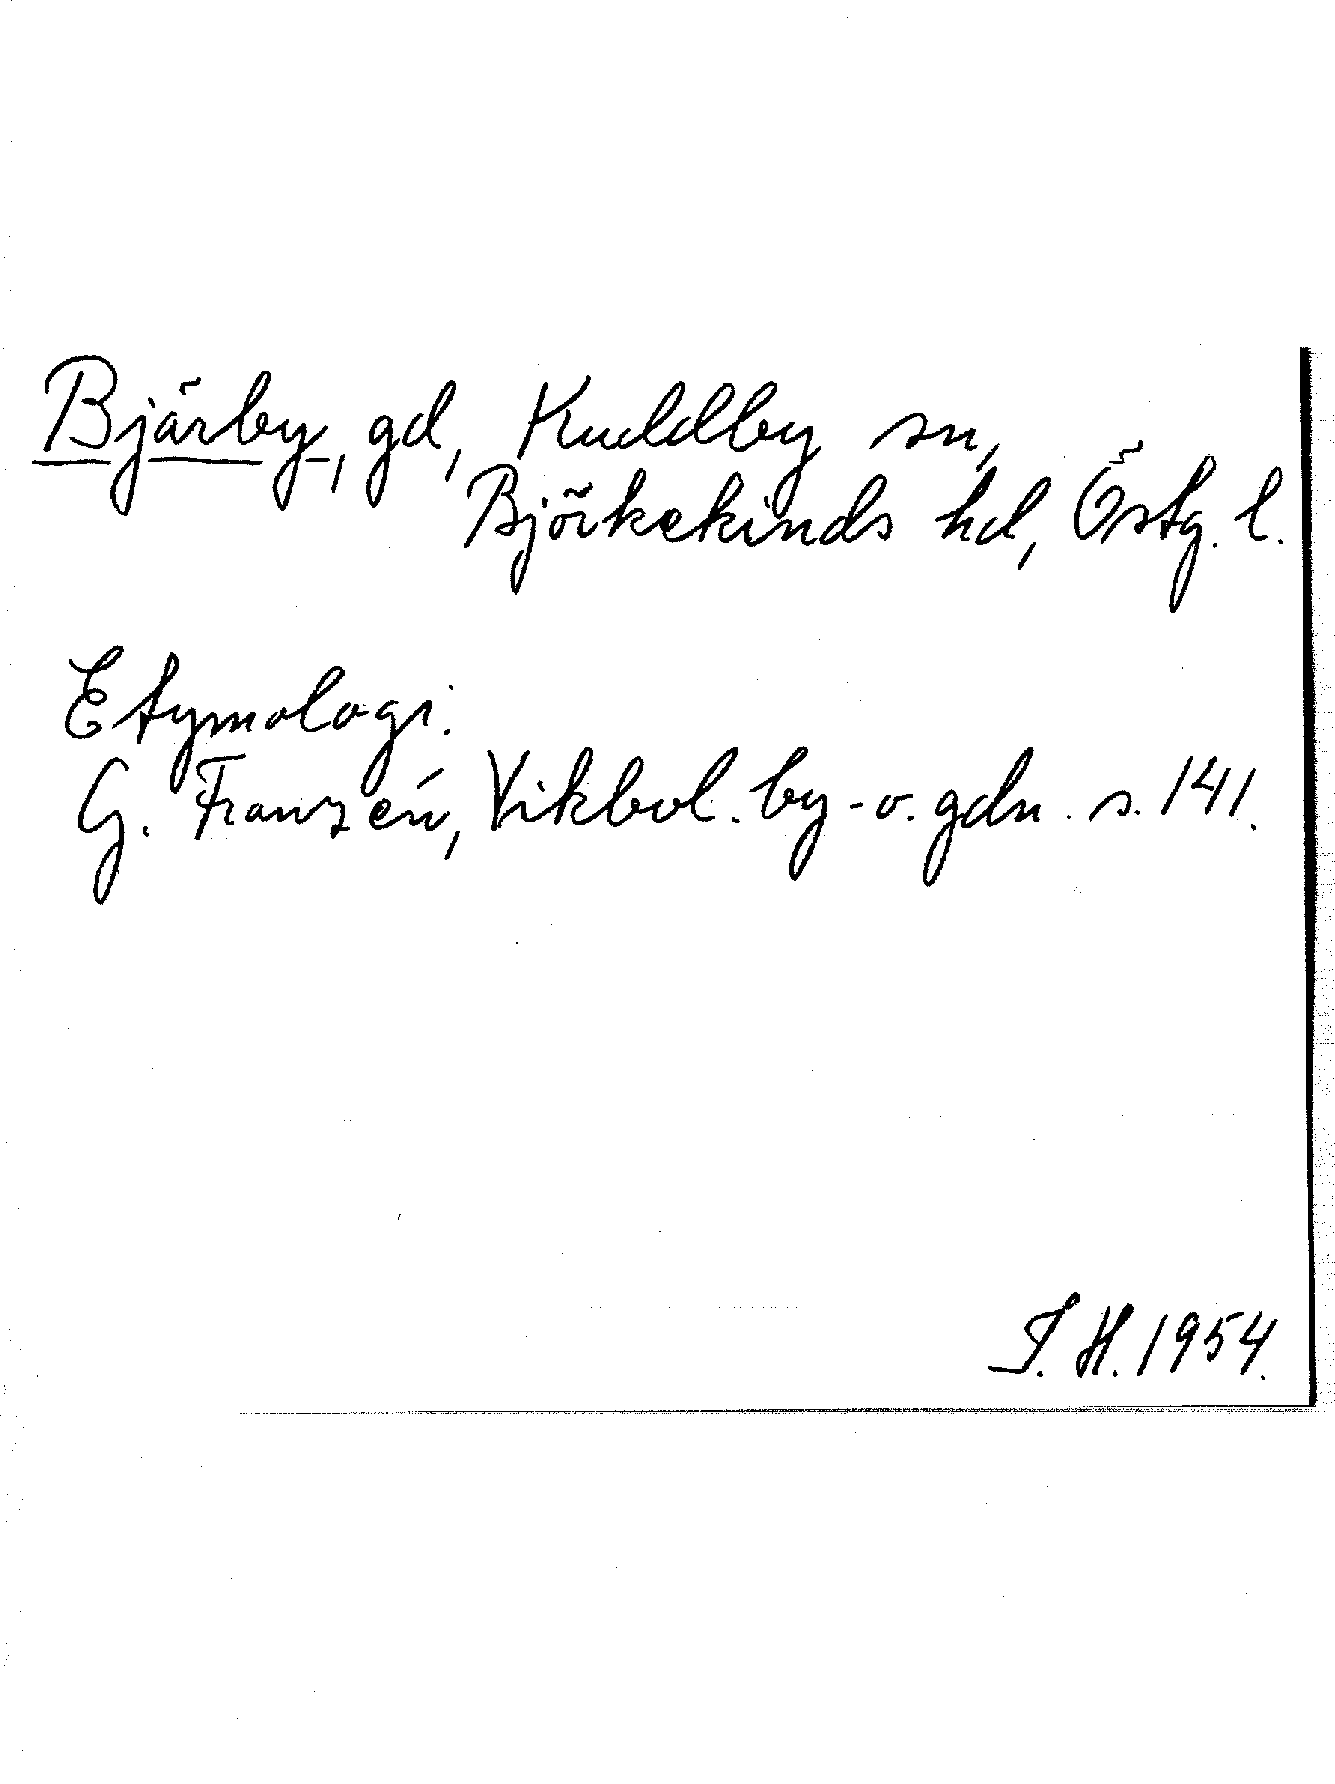 Bjärby, gd, Kuddby sn,
Björkekinds hd, Östg. l.
Etymologi.
G. Franzén, Vikbol. by- o. gdn. s. 141.
I. H. 1954.